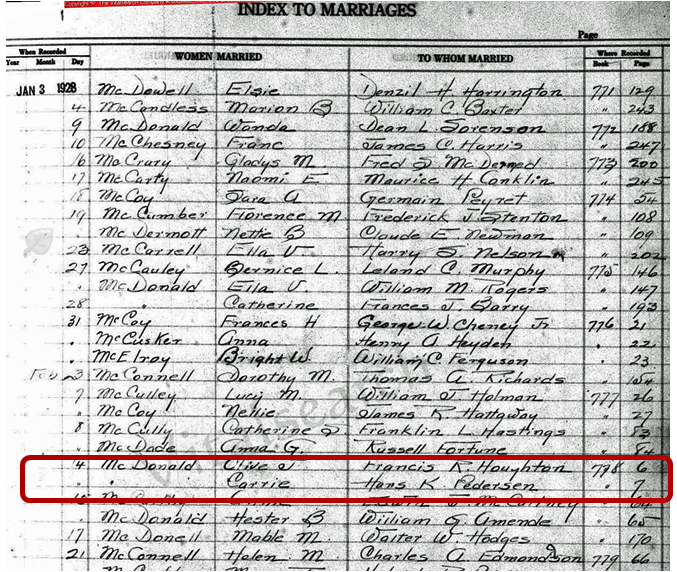 INDEX TO MARRIAGES
Page
When Recorded WOMEN MARRIED TO WHOM MARRIED Where Recorded
Year Month Day Book Page
JAN 3 1928 McDowell Elsie Denzil H. Harrington 771 129
4 McCandless Marion B William C. Baxter " 243
9 McDonald Wanda Dean L. Sorenson 772 188
10 McChesney Franc James C. Harris " 247
16 McCrary Gladys M. Fred 773 200
17 McCarty Naomi E Maurice H Conklin " 245
18 McCoy Sara A Germain Peyret 774 24
19 McCumber Florence M. Frederick J. Stenton " 108
" McDermott Nettie B Claude E. Newman " 109
23 McCarrell Ella V. Harry S. Nelson " 202
27 McCauley Bernice L. Leland C. Murphy 775 146
" McDonald Ella V. William M. Rogers " 147
28 " Catherine Frances J. Barry " 193
31 McCoy Frances H George W. Cheney Jr 776 21
" McCusker Anna Henry A Heyden " 22
" McElroy Bright W. William C. Ferguson " 23
Feb 3 McConnell Dorothy M. Thomas A Richards " 154
7 McCulley Lucy M. William J Holman 777 26
" McCoy Nellie James K Hattaway " 27
8 McCully Catherine Franklin L Hastings " 83
" McDade Anna G. Russell Fortune " 84
14 McDonald Olive J Francis R. Houghton 778 6
" " Carrie Hans K Pedersen " 7
15
" McDonald Hester B William G Amende " 65
17 McDonell Mable M. Walter W. Hodges " 170
21 McConnell Helen M. Charles A. Edmondson 779 66